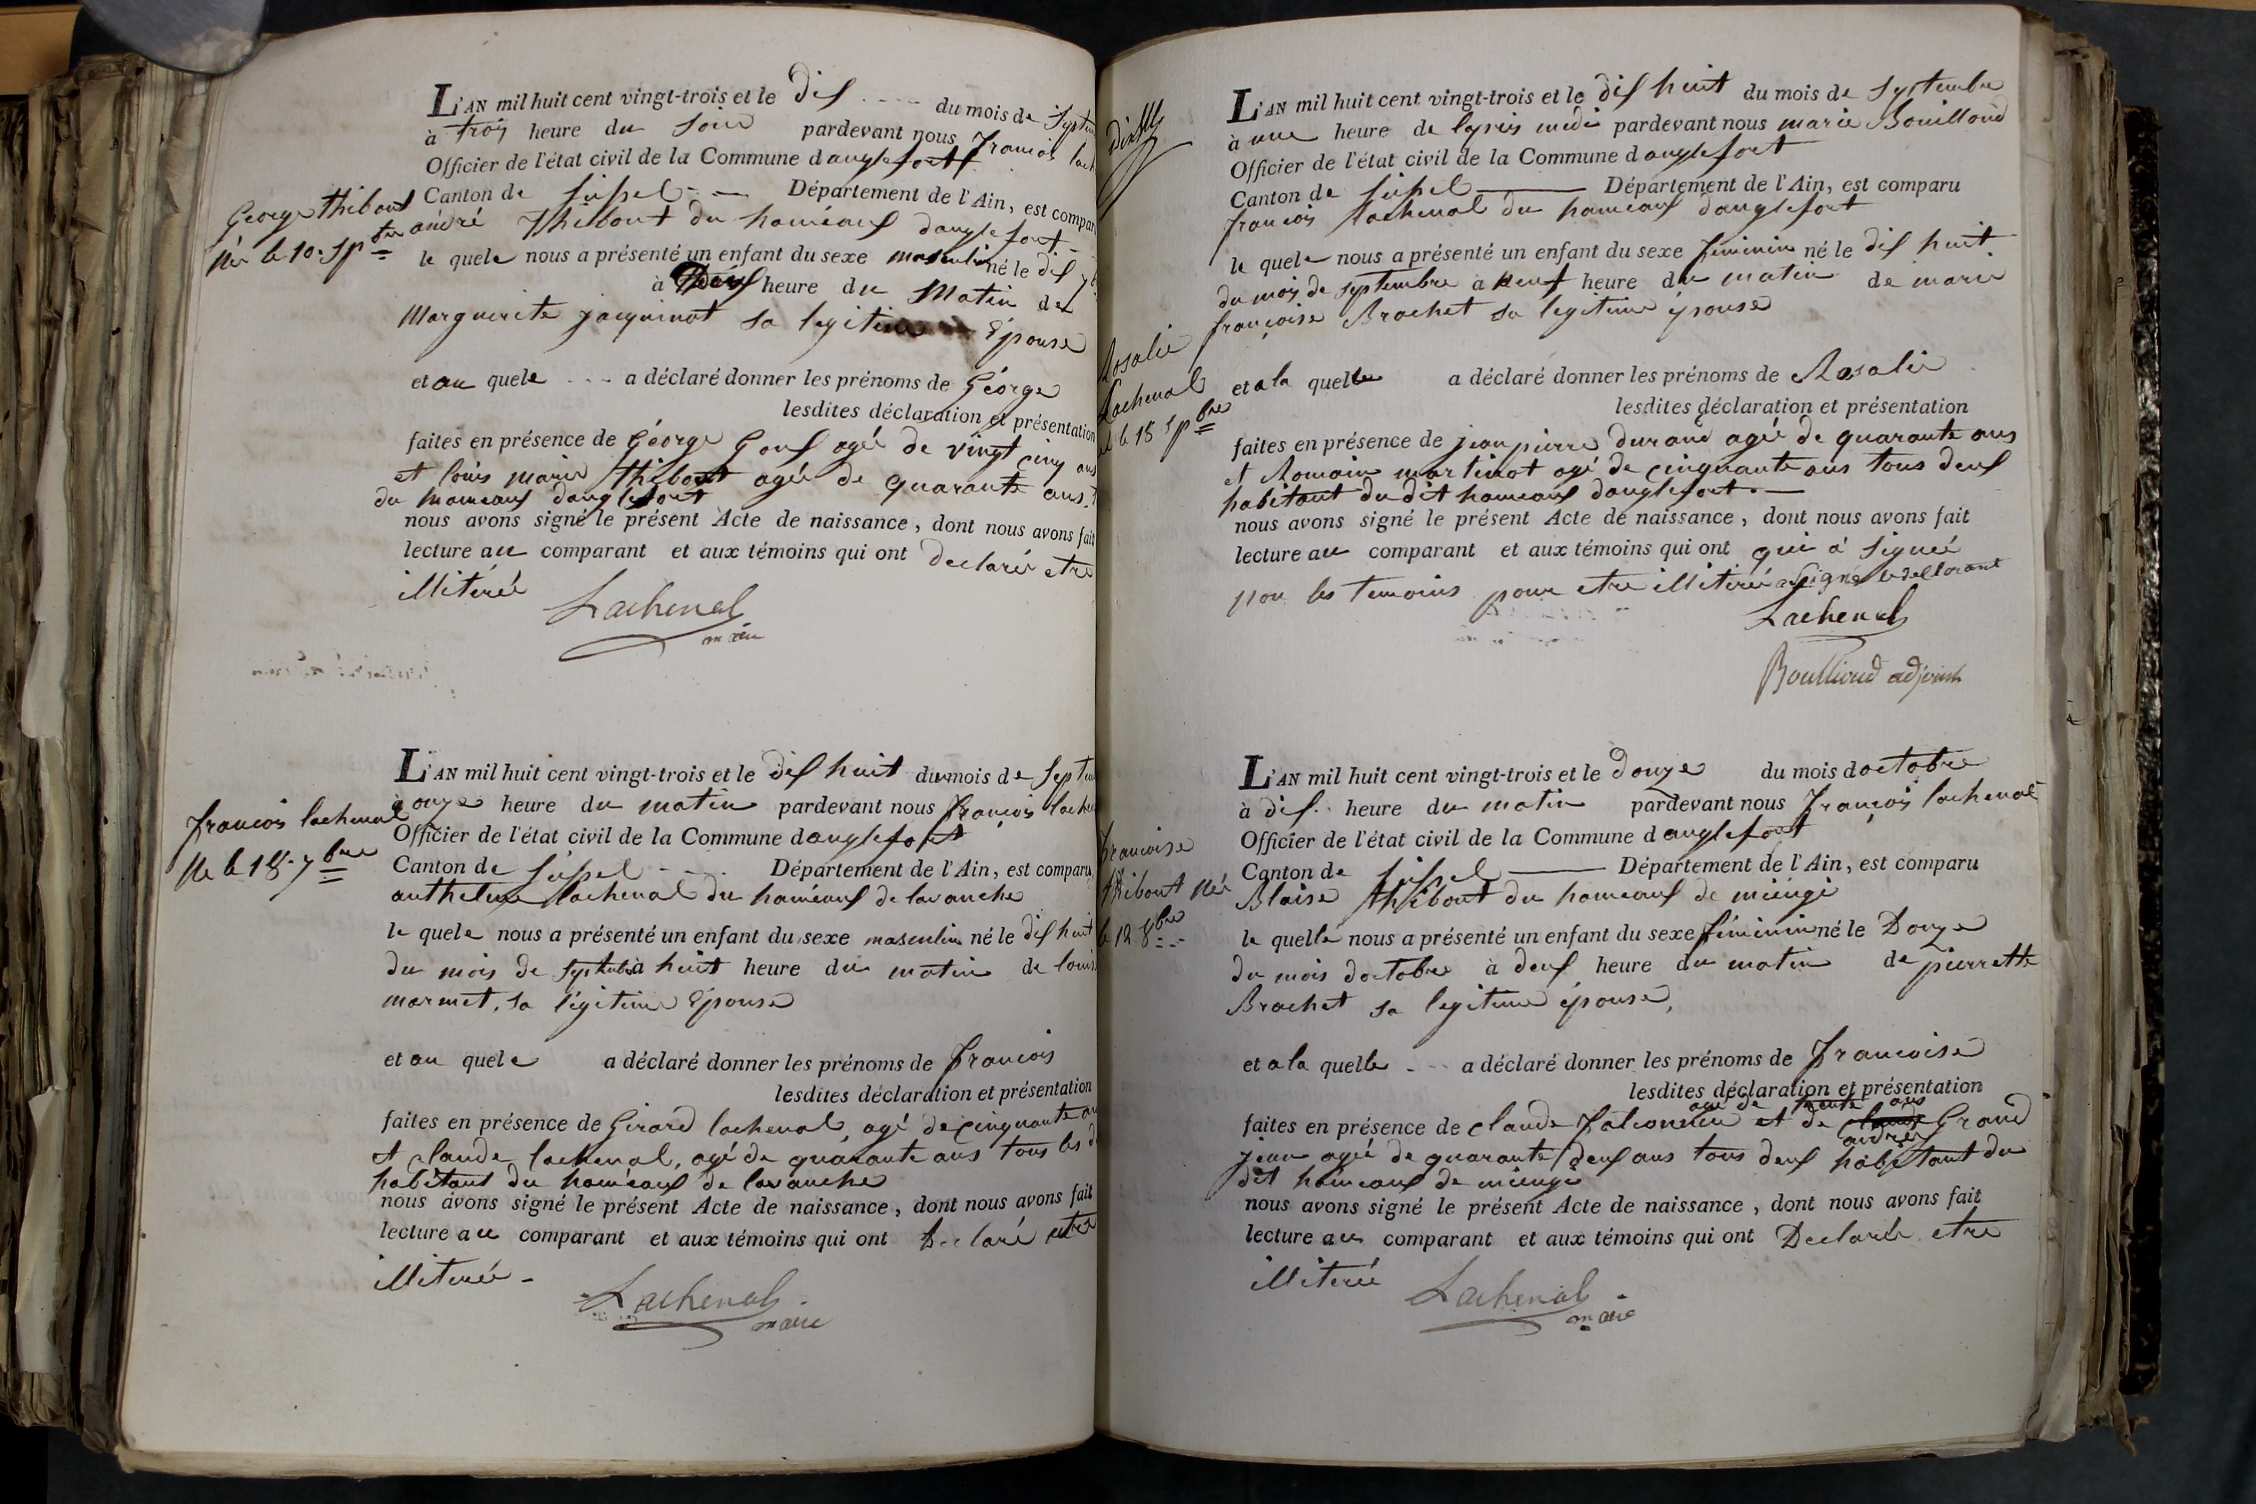 L'AN mil huit cent vingt-trois et le dix du mois de Septem
à trois heure du Soir pardevant nous François lach
Officier de l'état civil de la Commune d anglefort
Canton de Seissel Département de l'Ain, est compar
andré Thibout du hameaux danglefort
George Thibout
Né le 10. Spbre
le quele nous a présenté un enfant du sexe masculin né le dix 7b
à heure du Matin de
Marguerite jacquinot sa legitime Epouse
et au quele a déclaré donner les prénoms de George
lesdites déclaration et présentation
faites en présence de George Goux agée de vingt cinq ans
et louis marie Thibout agée de quarante ans
du hameaux danglefort
nous avons signé le présent Acte de naissance, dont nous avons fait
lecture au comparant et aux témoins qui ont declarée etre
illiterée
Lachenal
maire
L'AN mil huit cent vingt-trois et le dix huit du mois de Septem
à onze heure du matin pardevant nous françois lachen
Officier de l'état civil de la Commune d anglefort
Canton de Seissel Département de l'Ain, est comparu
anthelme lachenal du haméaux de lavanche
francois lachenal
Né le 18. 7bre
le quele nous a présenté un enfant du sexe masculin né le dix huit
du mois de Septembre à huit heure du matin de louis
marmet, sa légitime Epouse
et au quele a déclaré donner les prénoms de francois
lesdites déclaration et présentation
faites en présence de Girard lachenal, agé de cinquante an
et claude lachenal, agé de quarante ans tous les d
habitant du haméaux de lavanche
nous avons signé le présent Acte de naissance, dont nous avons fait
lecture au comparant et aux témoins qui ont Declaré etre
illiterée
Lachenal
maire
L'AN mil huit cent vingt-trois et le dix huit du mois de Septembre
à une heure de lapres midi pardevant nous marie Bouilloud
Officier de l'état civil de la Commune d anglefort
Canton de Seissel Département de l'Ain, est comparu
francois lachenal du hameaux danglefort
le quele nous a présenté un enfant du sexe féminin né le dix huit
du mois de septembre à neuf heure du matin de marie
françoise Brachet sa legitime épouse
Rosalie
Lachenal
né le 18 Spbre
et a la quelle a déclaré donner les prénoms de Rosalie
lesdites déclaration et présentation
faites en présence de jean pierre durand agée de quarante ans
et Romain martinot agé de cinquante ans tous deux
habitant du dit hameaux danglefort.
nous avons signé le présent Acte de naissance, dont nous avons fait
lecture au comparant et aux témoins qui ont qui a signée
non les temoins pour etre illiterée a signé le dellorant
Lachenal
Boullioud adjoint
L'AN mil huit cent vingt-trois et le douze du mois doctobre
à dix heure du matin pardevant nous françois lachenal
Officier de l'état civil de la Commune d anglefort
Canton de Seissel Département de l'Ain, est comparu
Blaise thibout du hameaux de mieugi
francoise
thibout née
le 12 8bre
le quelle nous a présenté un enfant du sexe féminin né le Douze
du mois doctobre à deux heure du matin de pierrette
Brachet sa legitime épouse,
et a la quelle a déclaré donner les prénoms de francoise
lesdites déclaration et présentation
agé de trente ans
faites en présence de claude falconnier et de claude Grand
andré
jean agée de quarante deux ans tous deux habitant du
dit hameaux de mieugi
nous avons signé le présent Acte de naissance, dont nous avons fait
lecture au comparant et aux témoins qui ont Declarée etre
illiterée
Lachenal
maire